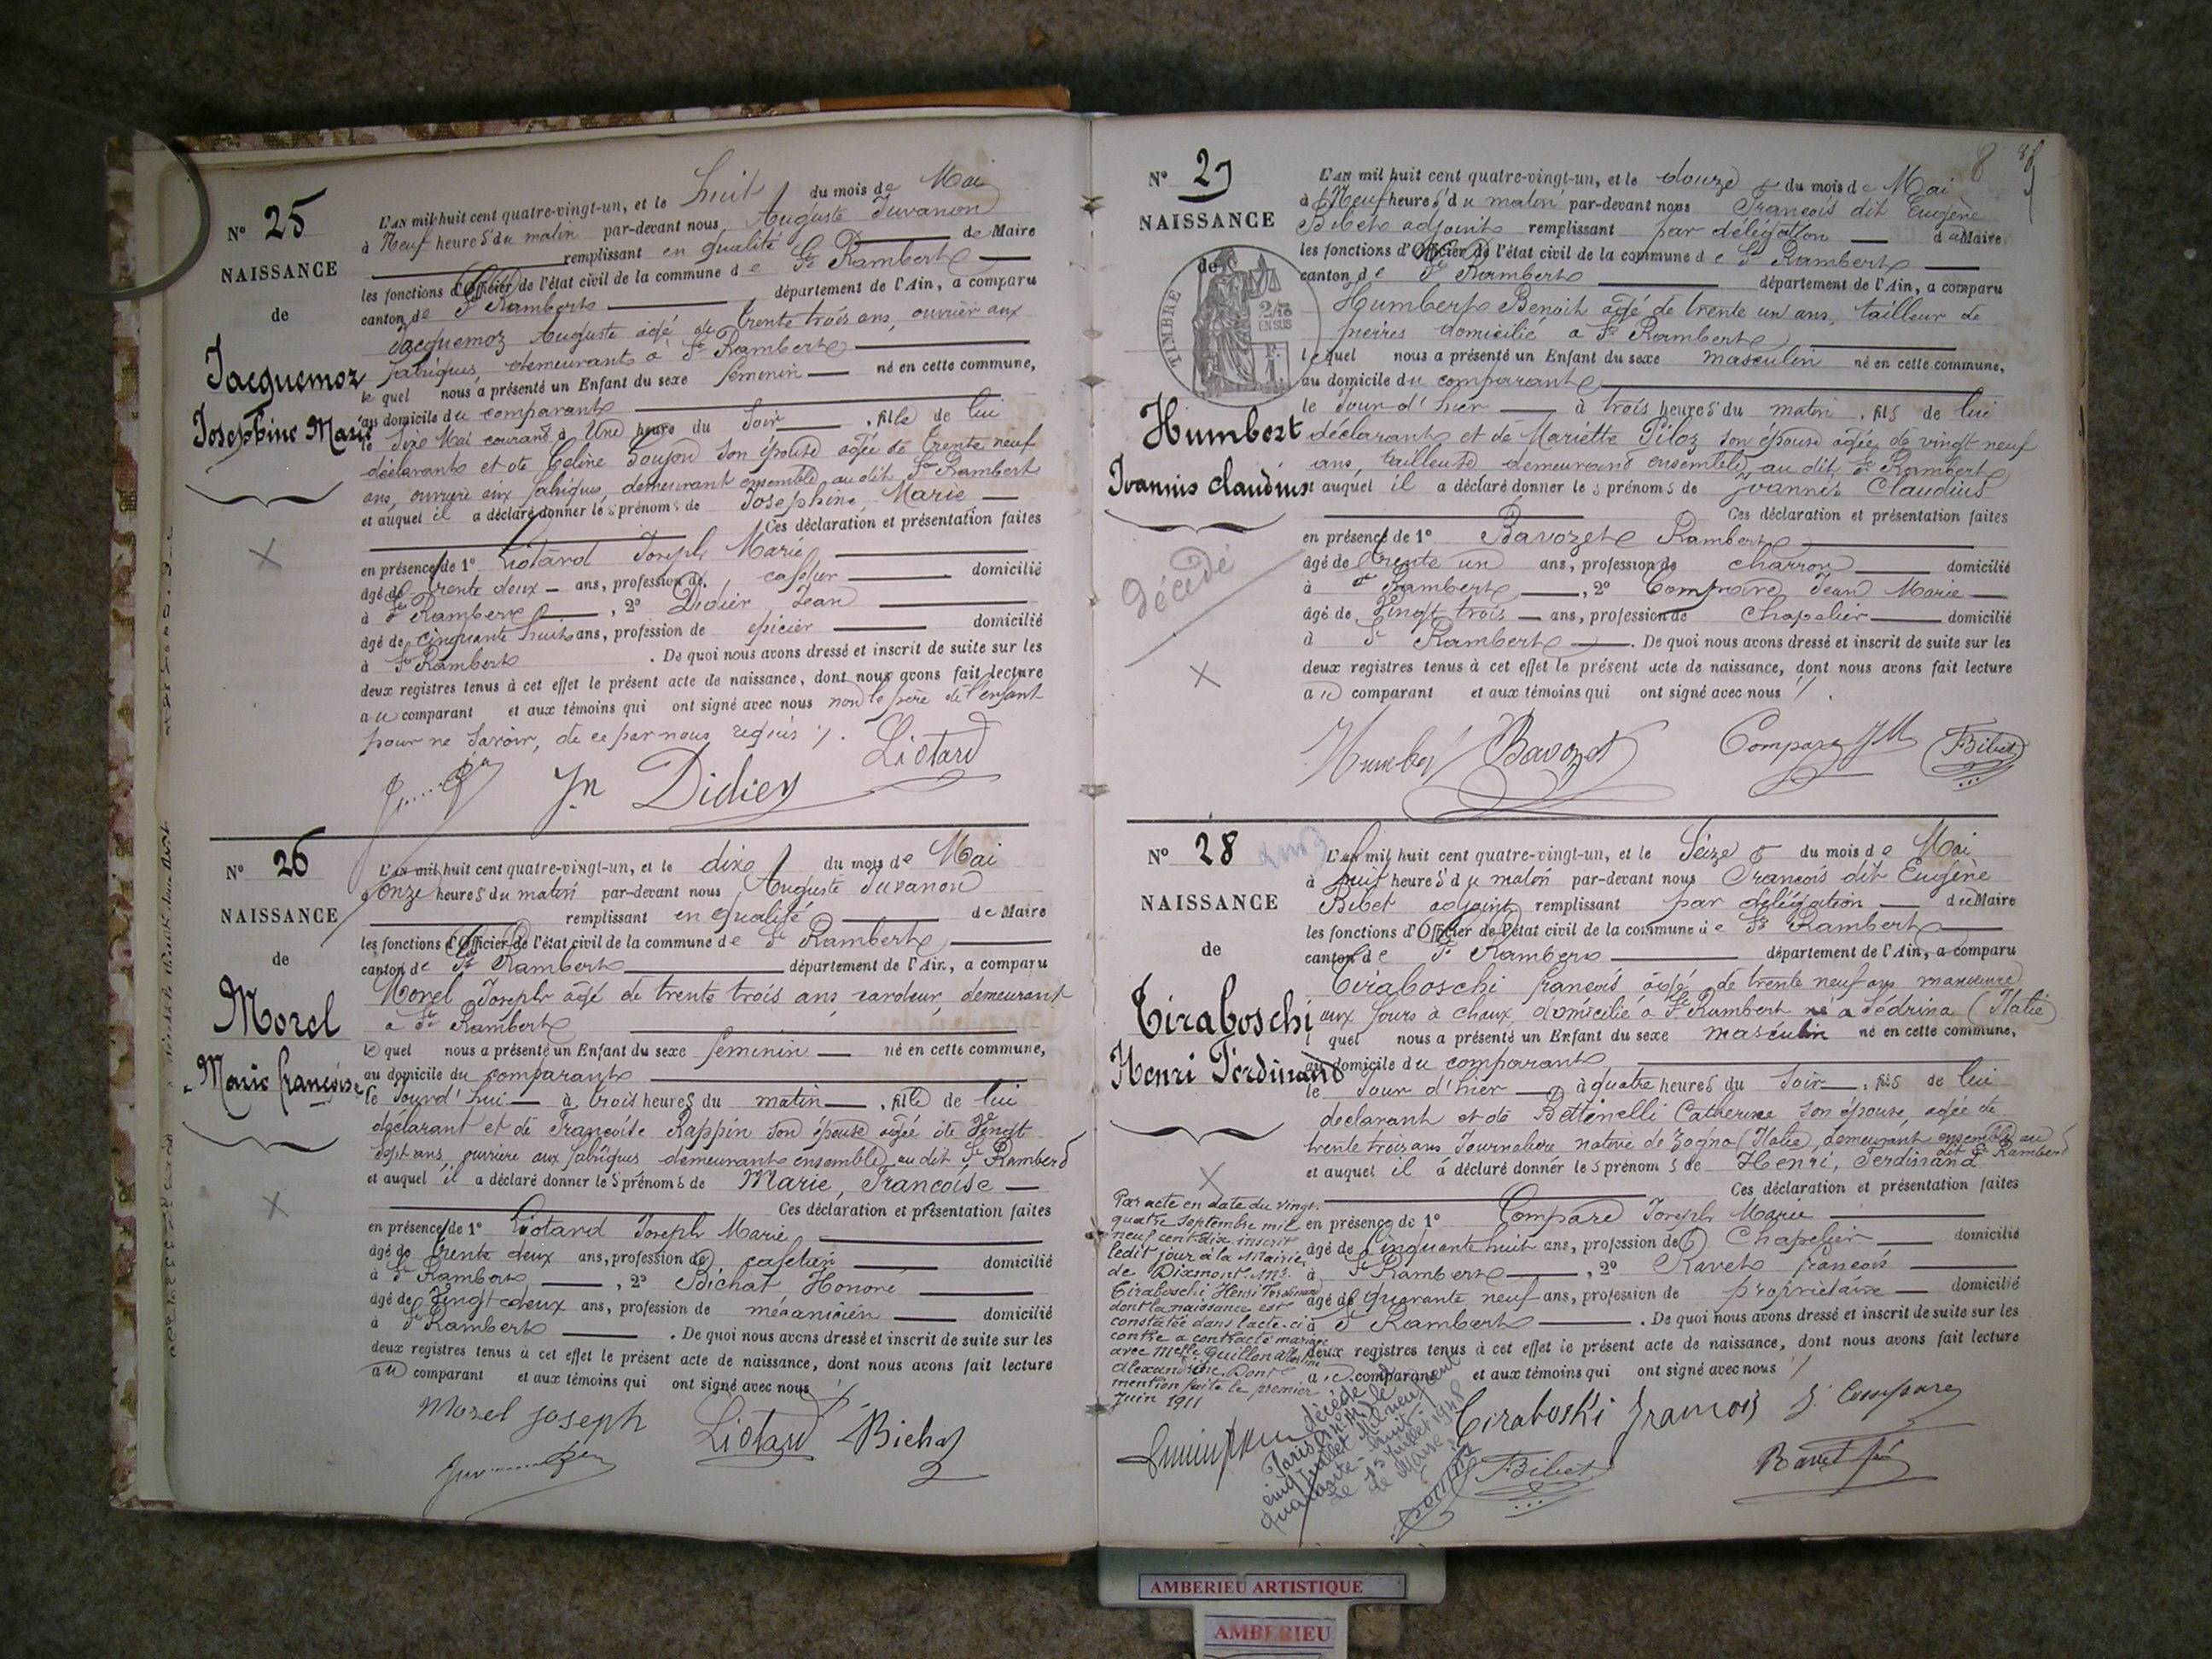 N° 25
NAISSANCE
de
Jacquemoz
Josephine Marie
L'AN mil huit cent quatre-vingt-un, et le huit du mois de Mai
à Neuf heures du matin par-devant nous Auguste Juvanon
remplissant en qualité de Maire
les fonctions d'Officier de l'état civil de la commune de St Rambert
canton de St Rambert département de l'Ain, a comparu
Jacquemoz Auguste agé de trente trois ans, ouvrier aux
fabriques, demeurant à St Rambert
le quel nous a présenté un Enfant du sexe féminin né en cette commune,
au domicile du comparant
le Six Mai courant à Une heure du Soir, fille de lui
déclarant et de Celine Soujon son épouse agée de trente neuf
ans, ouvriere aux fabriques, demeurant ensemble au dit St Rambert
et auquel il a déclaré donner les prénoms de Josephine, Marie
Ces déclaration et présentation faites
en présence de 1° Liotard Joseph Marie
âgé de trente deux ans, profession de cafetier domicilié
à St Rambert, 2° Didier Jean
âgé de cinquante huit ans, profession de épicier domicilié
à St Rambert. De quoi nous avons dressé et inscrit de suite sur les
deux registres tenus à cet effet le présent acte de naissance, dont nous avons fait lecture
au comparant et aux témoins qui ont signé avec nous non le père de l'enfant
pour ne savoir, de ce par nous requis /.
Liotard
Jn Didier
N° 26
NAISSANCE
de
Morel
Marie françoise
L'AN mil huit cent quatre-vingt-un, et le dix du mois de Mai
à onze heures du matin par-devant nous Auguste Juvanon
remplissant en qualité de Maire
les fonctions d'Officier de l'état civil de la commune de St Rambert
canton de St Rambert département de l'Ain, a comparu
Morel Joseph agé de trente trois ans cardeur, demeurant
à St Rambert
le quel nous a présenté un Enfant du sexe féminin né en cette commune,
au domicile du comparant
le Jourd'hui à trois heures du matin, fille de lui
déclarant et de Françoise Rappin son épouse agée de Vingt
sept ans, ouvriere aux fabriques demeurant ensemble, au dit St Rambert
et auquel il a déclaré donner les prénoms de Marie, Françoise
Ces déclaration et présentation faites
en présence de 1° Liotard Joseph Marie
âgé de trente deux ans, profession de cafetier domicilié
à St Rambert, 2° Bichat Honoré
âgé de Vingt deux ans, profession de mécanicien domicilié
à St Rambert. De quoi nous avons dressé et inscrit de suite sur les
deux registres tenus à cet effet le présent acte de naissance, dont nous avons fait lecture
au comparant et aux témoins qui ont signé avec nous /.
Morel joseph Liotard Bichat
N° 27
NAISSANCE
de
TIMBRE
2/10 EN SUS
Humbert
Joannis claudius
décédé
L'AN mil huit cent quatre-vingt-un, et le douze du mois de Mai
à Neuf heures du matin par-devant nous François dit Eugène
Bibet adjoint remplissant par délégation du Maire
les fonctions d'Officier de l'état civil de la commune de St Rambert
canton de St Rambert département de l'Ain, a comparu
Humbert Benoit agé de trente un ans, tailleur de
pierres domicilié à St Rambert
lequel nous a présenté un Enfant du sexe masculin né en cette commune,
au domicile du comparant
le Jour d'hier à trois heures du matin, fils de lui
déclarant et de Mariette Piloz son épouse agée de vingt neuf
ans, tailleuse demeurant ensemble, au dit St Rambert
et auquel il a déclaré donner les prénoms de Joannès Claudius
Ces déclaration et présentation faites
en présence de 1° Bavozet Rambert
âgé de trente un ans, profession de charron domicilié
à St Rambert, 2° Compare Jean Marie
âgé de Vingt trois ans, profession de Chapelier domicilié
à St Rambert. De quoi nous avons dressé et inscrit de suite sur les
deux registres tenus à cet effet le présent acte de naissance, dont nous avons fait lecture
au comparant et aux témoins qui ont signé avec nous /.
Humbert Bavozet Compare JM FBibet
N° 28
NAISSANCE
de
Tiraboschi
Henri Ferdinand
L'AN mil huit cent quatre-vingt-un, et le Seize du mois de Mai
à huit heures du matin par-devant nous François dit Eugène
Bibet adjoint remplissant par délégation du Maire
les fonctions d'Officier de l'état civil de la commune de St Rambert
canton de St Rambert département de l'Ain, a comparu
Tiraboschi françois agé de trente neuf ans manœuvre
aux fours à chaux, domicilié à St Rambert né à Sédrina (Italie)
quel nous a présenté un Enfant du sexe masculin né en cette commune,
au domicile du comparant
le Jour d'hier à quatre heures du Soir, fils de lui
declarant et de Bettinelli Catherine son épouse, agée de
trente trois ans Journaliere native de Zogno (Italie), demeurant ensemble au
dit St Rambert
et auquel il a déclaré donner les prénoms de Henri, Ferdinand
Ces déclaration et présentation faites
en présence de 1° Compare Joseph Marie
âgé de Cinquante huit ans, profession de Chapelier domicilié
à St Rambert, 2° Ravet françois
âgé de quarante neuf ans, profession de propriétaire domicilié
à St Rambert. De quoi nous avons dressé et inscrit de suite sur les
deux registres tenus à cet effet le présent acte de naissance, dont nous avons fait lecture
au comparant et aux témoins qui ont signé avec nous /
Par acte en date du vingt-
quatre septembre mil
neuf cent dix inscrit
ledit jour à la Mairie
de Dixmont. Mr.
Tiraboschi Henri Ferdinand
dont la naissance est
constatée dans l'acte-ci
contre a contracté mariage
avec Melle Guillon Albertine
Alexandrine. Dont
mention faite le premier
Juin 1911
décédé à
Paris le
cinq Juillet Mil neuf cent
quarante-huit
Le 15 Juillet 1948
Le Maire
Tiraboski Francois J. Compare
FBibet Ravet fois
AMBERIEU ARTISTIQUE
AMBERIEU